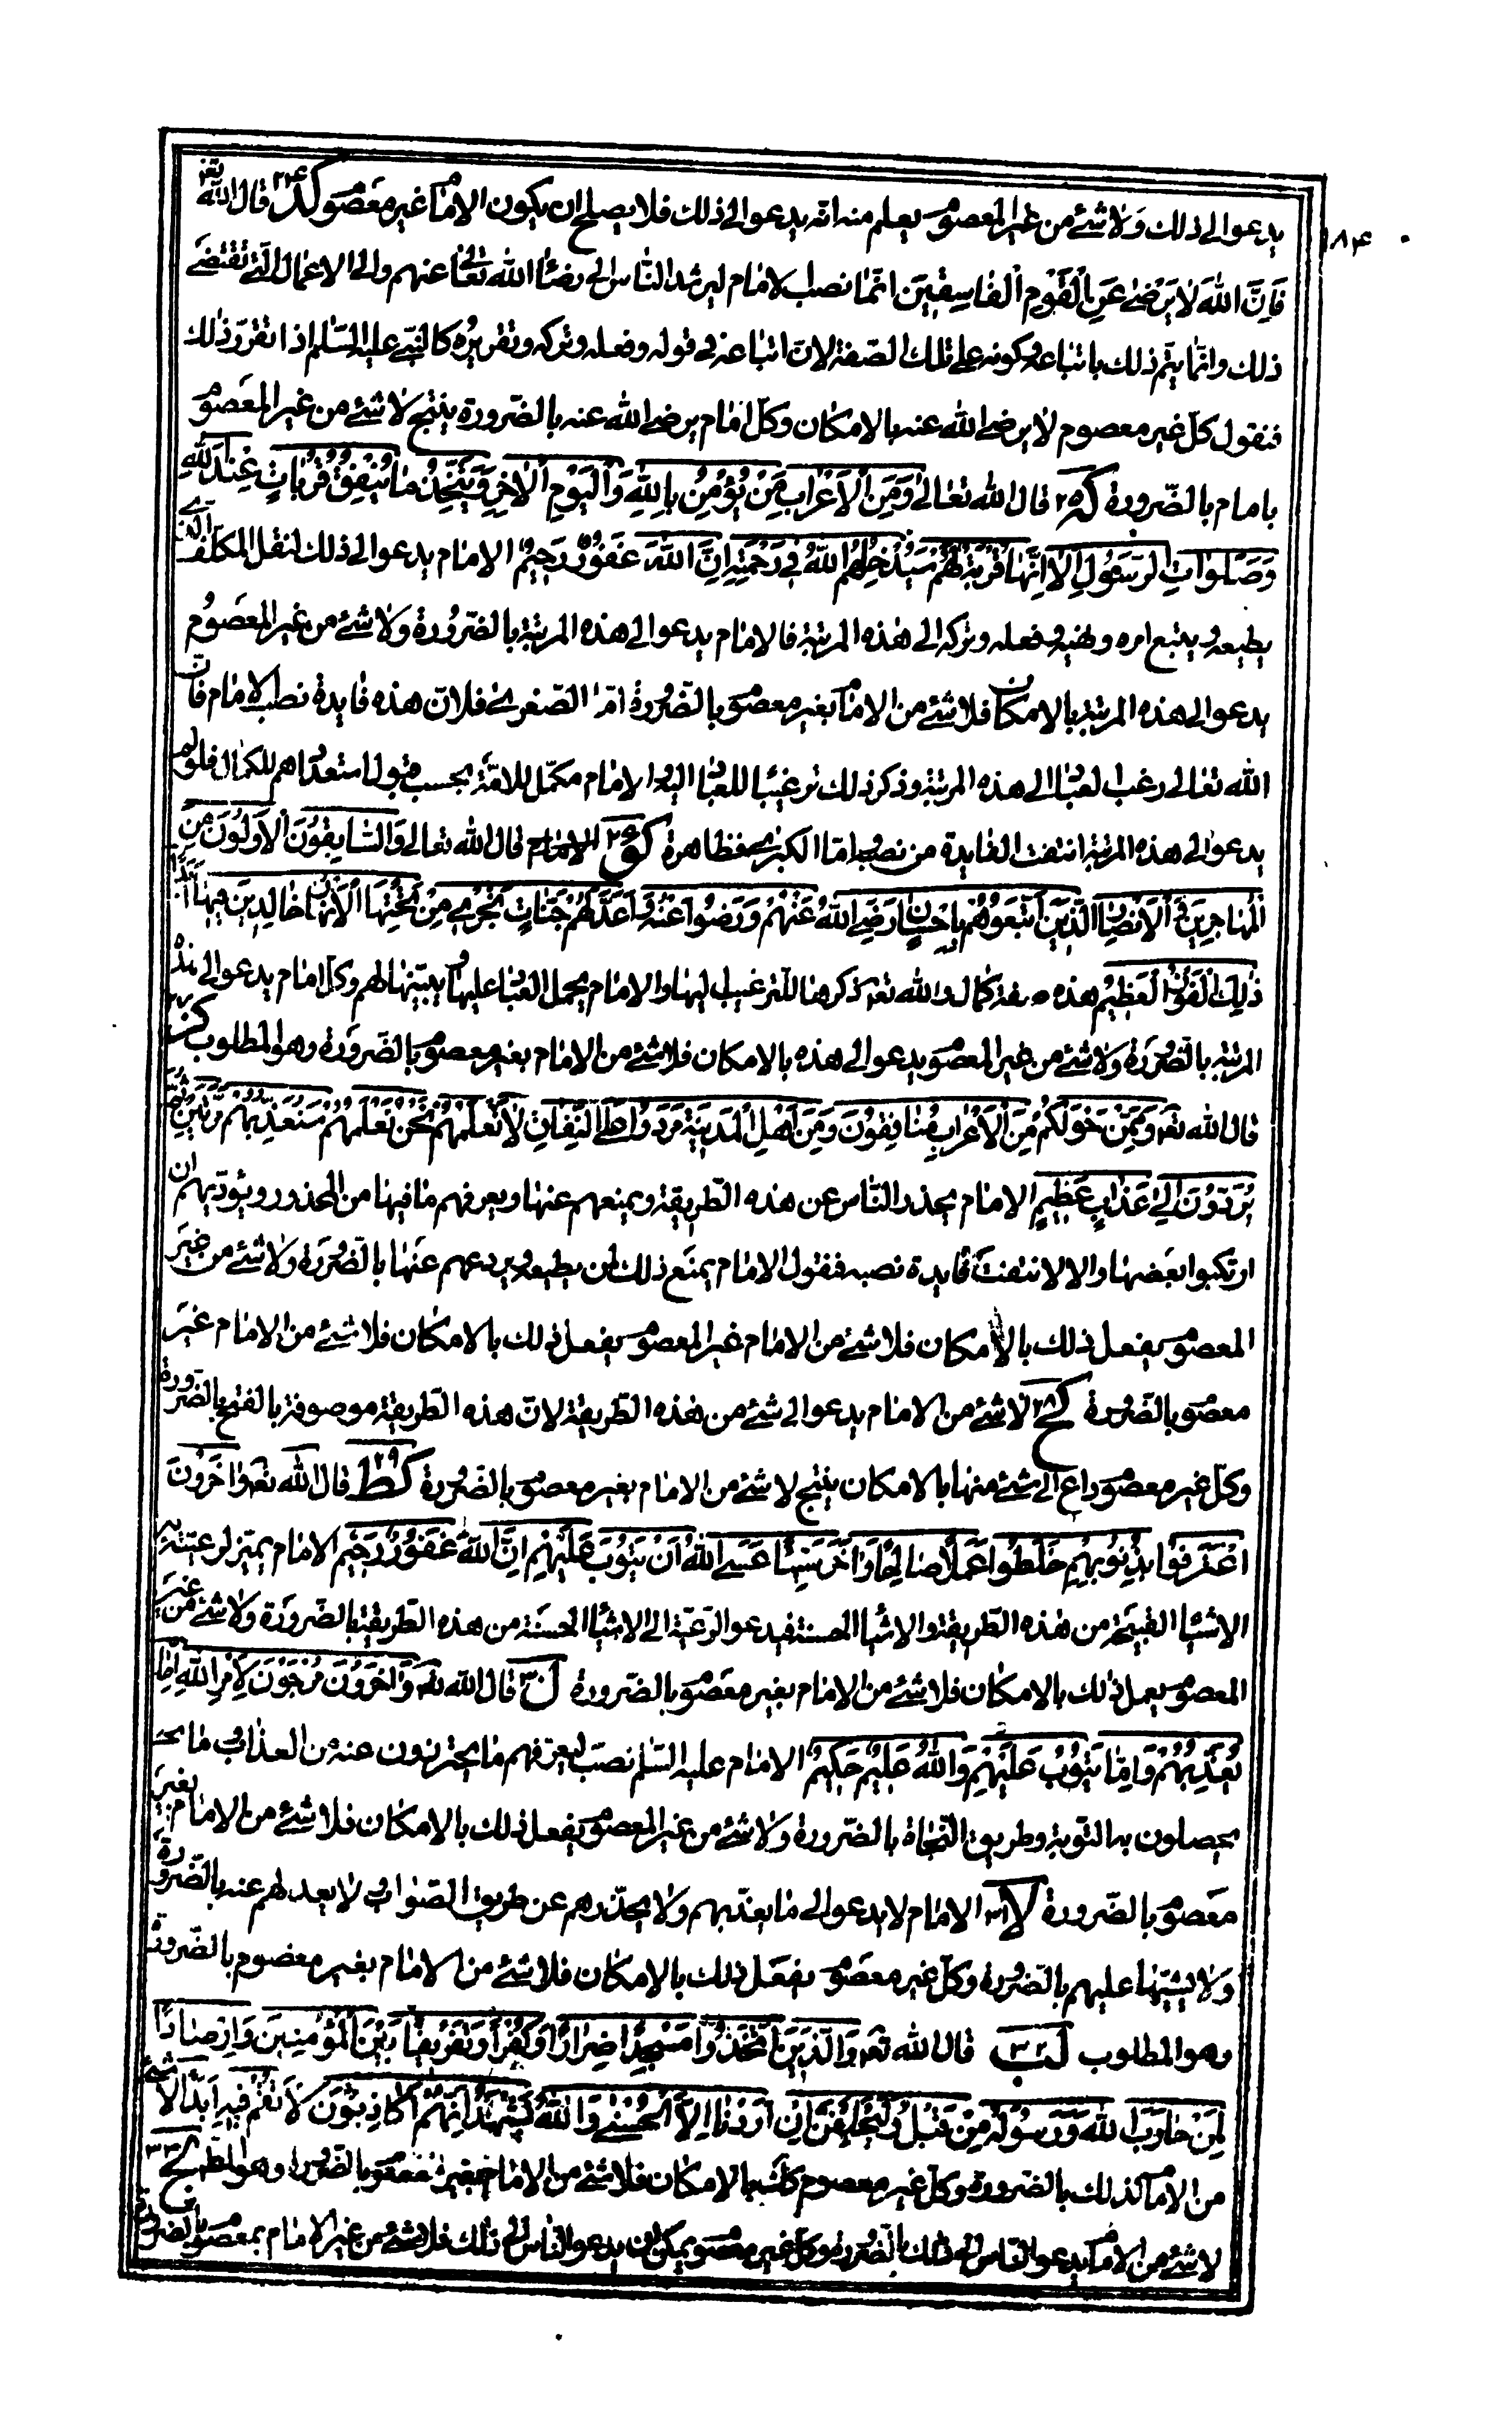 ١٨٤
يدعوا لى ذلك ولا شئ من غير المعصوم يعلم منه انه يدعوا لى ذلك فلا يصلح ان يكون الامام غير معصوم كد ٢٤ قال الله تعا
فان الله لا يرضى عن القوم الفاسقين انما نصب الامام ليرشد الناس الى رضاء الله تعالى عنهم والى الاعمال التى تقتضى
ذلك وانما يتم ذلك باتباعه وكونه على تلك الصفة لان اتباعه فى قوله وفعله وتركه وتقريره كالنبى عليه السلم اذا تقرر ذلك
فنقول كل غير معصوم لا يرضى الله عنه بالامكان وكل امام يرضى الله عنه بالضرورة ينتج لا شئ من غير المعصوم
بامام بالضرورة كه ٢٥ قال الله تعالى ومن الاعراب من يؤمن بالله واليوم الاخر ويتخذ ما ينفق قربات عند الله
وصلوات الرسول الا انها قربة لهم سيدخلهم الله فى رحمته ان الله غفور رحيم الامام يدعوا لى ذلك لنقل المكلف الذى
يطيعه ويتبع امره ونهيه وفعله وتركه الى هذه المرتبة فالامام يدعوا لى هذه المرتبة بالضرورة ولا شئ من غير المعصوم
يدعوا لى هذه المرتبة بالامكان فلا شئ من الامام بغير معصوم بالضرورة اما الصغرى فلان هذه فايدة نصب الامام فان
الله تعالى رغب العباد الى هذه المرتبة وذكر ذلك ترغيبا للعباد اليه والامام مكمل للامة بحسب قبول استعدادهم للكمال فلو لم
يدعوا لى هذه المرتبة انتفت الفايدة من نصبه واما الكبرى فظاهرة كو ٢٦ الامام قال الله تعالى والسابقون الاولون من
المهاجرين والانصار والذين اتبعوهم باحسان رضى الله عنهم ورضوا عنه واعد لهم جنات تجرى من تحتها الانهار خالدين فيها ابدا
ذلك الفوز العظيم هذه صفة كمال والله تعا ذكرها للترغيب اليها والامام يحمل العباد عليها ويبينها لهم وكل امام يدعوا لى هذه
المرتبة بالضرورة ولا شئ من غير المعصوم يدعوا لى هذه بالامكان فلا شئ من الامام بغير معصوم بالضرورة وهو المطلوب كز ٢٧
قال الله تعا وممن حولكم من الاعراب منافقون ومن اهل المدينة مردوا على النفاق لا تعلمهم نحن نعلمهم سنعذبهم مرتين ثم
يردون الى عذاب عظيم الامام يحذر الناس عن هذه الطريقة ويمنعهم عنها ويعرفهم ما فيها من المحذور ويؤدبهم ان
ارتكبوا بعضها والا لانتفت فايدة نصبه فنقول الامام يمنع ذلك لمن يطيعه ويردعهم عنها بالضرورة ولا شئ من غير
المعصوم يفعل ذلك بالامكان فلا شئ من الامام غير المعصوم يفعل ذلك بالامكان فلا شئ من الامام غير
معصوم بالضرورة كح ٢٨ لا شئ من الامام يدعوا لى شئ من هذه الطريقة لان هذه الطريقة موصوفة بالقبح بالضرورة
وكل غير معصوم داع الى شئ منها بالامكان ينتج لا شئ من الامام بغير معصوم بالضرورة كط ٢٩ قال الله تعا واخرون
اعترفوا بذنوبهم خلطوا عملا صالحا واخر سيئا عسى الله ان يتوب عليهم ان الله غفور رحيم الامام يميز لرعيته
الاشياء القبيحة من هذه الطريقة والاشياء الحسنة فيدعو الرعية الى الاشياء الحسنة من هذه الطريقة بالضرورة ولا شئ من غير
المعصوم يعمل ذلك بالامكان فلا شئ من الامام بغير معصوم بالضرورة ل ٣٠ قال الله تعا واخرون مرجون لامر الله اما
يعذبهم واما يتوب عليهم والله عليم حكيم الامام عليه السلم نصب ليعرفهم ما يحترزون عنه من العذاب وما
يحصلون به التوبة وطريق النجاة بالضرورة ولا شئ من غير المعصوم يفعل ذلك بالامكان فلا شئ من الامام بغير
معصوم بالضرورة لا ٣١ الامام لا يدعوا لى ما يعذبهم ولا يحذرهم عن طريق الصواب ولا يعدلهم عنه بالضرورة
ولا يشبهها عليهم بالضرورة وكل غير معصوم يفعل ذلك بالامكان فلا شئ من الامام بغير معصوم بالضرورة
وهو المطلوب لب ٣٢ قال الله تعا والذين اتخذوا مسجدا ضرارا وكفرا وتفريقا بين المؤمنين وارصادا
لمن حارب الله ورسوله من قبل وليحلفن ان اردنا الا الحسنى والله يشهد انهم لكاذبون لا تقم فيه ابدا لا شئ
من الامام كذلك بالضرورة وكل غير معصوم كذلك بالامكان فلا شئ من الامام بغير معصوم بالضرورة وهو المط لج ٣٣
لا شئ من الامام يدعو الناس الى ذلك بالضرورة وكل غير معصوم يمكن ان يدعو الناس الى ذلك فلا شئ من غير الامام بمعصوم بالضرورة